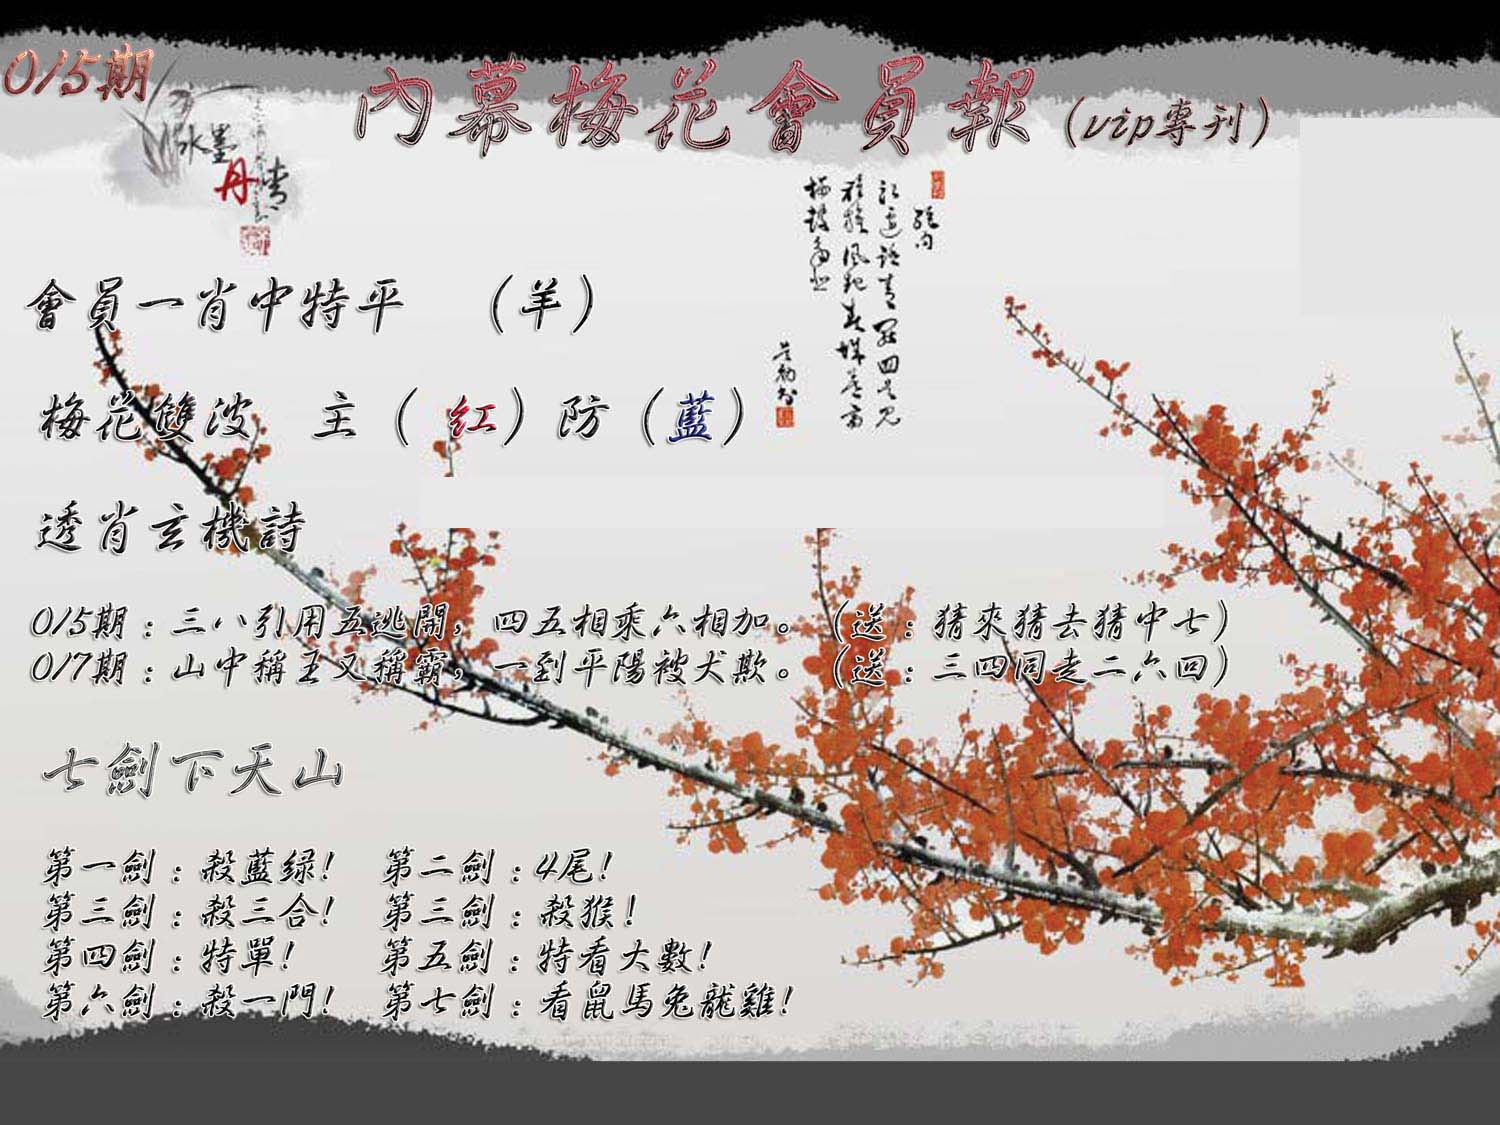 015期
內幕梅花會員報（vip專刊）
水墨
丹青
會員一肖中特平　（羊）
梅花雙波　主（紅）防（藍）
透肖玄機詩
015期：三八引用五逃開，四五相乘六相加。（送：猜來猜去猜中七）
017期：山中稱王又稱霸，一到平陽被犬欺。（送：三四同走二六回）
七劍下天山
第一劍：殺藍綠！　第二劍：4尾！
第三劍：殺三合！　第三劍：殺猴！
第四劍：特單！　第五劍：特看大數！
第六劍：殺一門！　第七劍：看鼠馬兔龍雞！